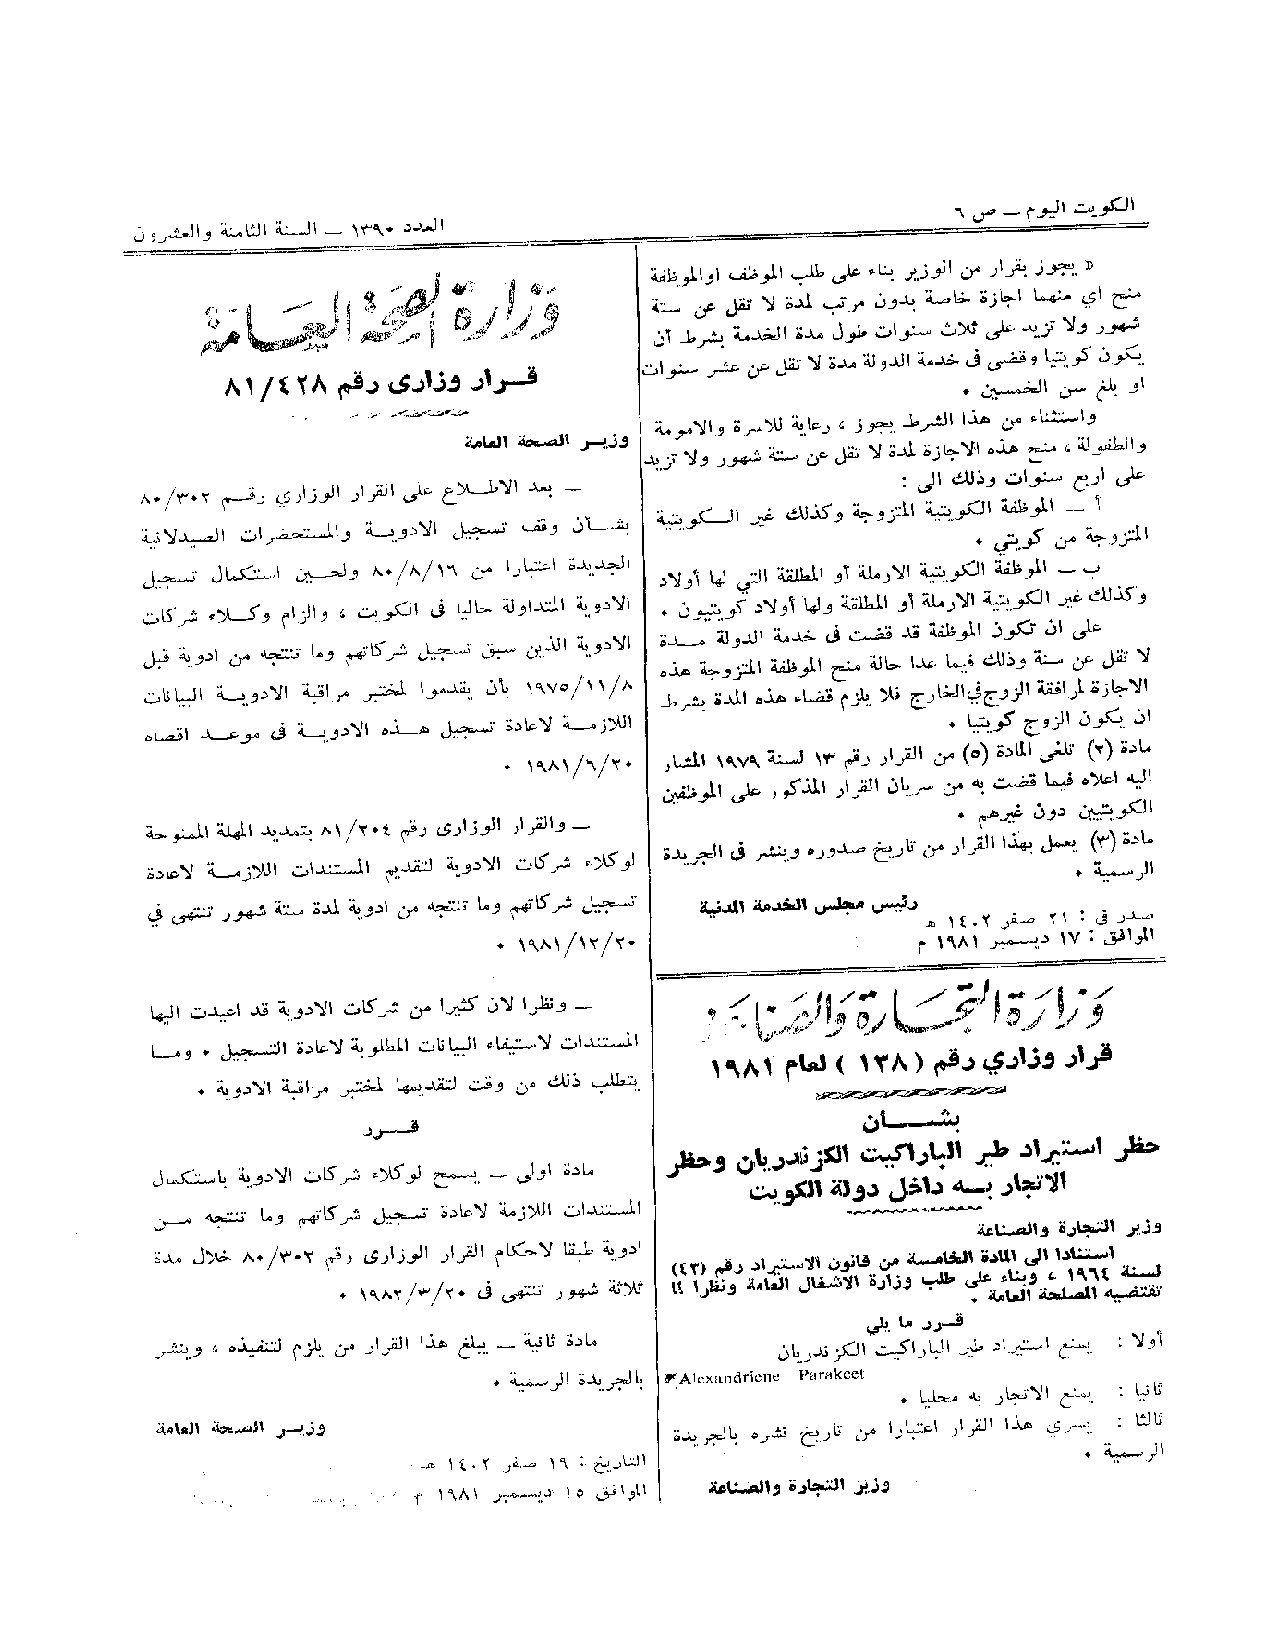 الكويت اليوم ــ ص ٦
العدد ١٣٩٠ ــ السنة الثامنة والعشرون
« يجوز بقرار من الوزير بناء على طلب الموظف او الموظفة
منح اي منهما اجازة خاصة بدون مرتب لمدة لا تقل عن ستة
شهور ولا تزيد على ثلاث سنوات طول مدة الخدمة بشرط أن
يكون كويتيا وقضى فى خدمة الدولة مدة لا تقل عن عشر سنوات
او بلغ سن الخمسين ٠
واستثناء من هذا الشرط يجوز ، رعاية للاسرة والامومة
والطفولة ، منح هذه الاجازة لمدة لا تقل عن ستة شهور ولا تزيد
على اربع سنوات وذلك الى :
أ ــ الموظفة الكويتية المتزوجة وكذلك غير الكويتية
المتزوجة من كويتي ٠
ب ــ الموظفة الكويتية الارملة أو المطلقة التي لها أولاد
وكذلك غير الكويتية الارملة أو المطلقة ولها أولاد كويتيون ٠
على ان تكون الموظفة قد قضت فى خدمة الدولة مدة
لا تقل عن سنة وذلك فيما عدا حالة منح الموظفة المتزوجة هذه
الاجازة لمرافقة الزوج في الخارج فلا يلزم قضاء هذه المدة بشرط
ان يكون الزوج كويتيا ٠
مادة (٢) تلغى المادة (٥) من القرار رقم ١٣ لسنة ١٩٧٩ المشار
اليه اعلاه فيما قضت به من سريان القرار المذكور على الموظفين
الكويتيين دون غيرهم ٠
مادة (٣) يعمل بهذا القرار من تاريخ صدوره وينشر فى الجريدة
الرسمية ٠
رئيس مجلس الخدمة المدنية
صدر فى : ٢١ صفر ١٤٠٢ هـ
الموافق : ١٧ ديسمبر ١٩٨١ م
وزارة التجارة والصناعة
قرار وزاري رقم ( ١٣٨ ) لعام ١٩٨١
بشــــان
حظر استيراد طير الباراكيت الكزندريان وحظر
الاتجار بــه داخل دولة الكويت
وزير التجارة والصناعة
استنادا الى المادة الخامسة من قانون الاستيراد رقم (٤٣)
لسنة ١٩٦٤ ، وبناء على طلب وزارة الاشغال العامة ونظرا لما
تقتضيه المصلحة العامة ٠
قـرر ما يلي
أولا : يمنع استيراد طير الباراكيت الكزندريان
Alexandriene Parakeet
ثانيا : يمنع الاتجار به محليا ٠
ثالثا : يسري هذا القرار اعتبارا من تاريخ نشره بالجريدة
الرسمية ٠
وزير التجارة والصناعة
وزارة الصحة العامة
قــرار وزارى رقم ٨١/٤٢٨
وزيــر الصحة العامة
ــ بعد الاطــلاع على القرار الوزاري رقــم ٨٠/٣٠٢
بشــأن وقف تسجيل الادويــة والمستحضرات الصيدلانية
الجديدة اعتبارا من ٨٠/٨/١٦ ولحــين استكمال تسجيل
الادوية المتداولة حاليا فى الكويت ، والزام وكــلاء شركات
الادوية الذين سبق تسجيل شركاتهم وما تنتجه من ادوية قبل
١٩٧٥/١١/٨ بأن يقدموا لمختبر مراقبة الادويــة البيانات
اللازمــة لاعادة تسجيل هــذه الادويــة فى موعــد اقصاه
١٩٨١/٦/٢٠ ٠
ــ والقرار الوزارى رقم ٨١/٢٠٤ بتمديد المهلة الممنوحة
لوكلاء شركات الادوية لتقديم المستندات اللازمــة لاعادة
تسجيل شركاتهم وما تنتجه من ادوية لمدة ستة شهور تنتهى في
١٩٨١/١٢/٢٠ ٠
ــ ونظرا لان كثيرا من شركات الادوية قد اعيدت اليها
المستندات لاستيفاء البيانات المطلوبة لاعادة التسجيل ٠ ومــا
يتطلب ذلك من وقت لتقديمها لمختبر مراقبة الادوية ٠
قــرر
مادة اولى ــ يسمح لوكلاء شركات الادوية باستكمال
المستندات اللازمة لاعادة تسجيل شركاتهم وما تنتجه مــن
ادوية طبقا لاحكام القرار الوزارى رقم ٨٠/٣٠٢ خلال مدة
ثلاثة شهور تنتهى فى ١٩٨٢/٣/٢٠ ٠
مادة ثانية ــ يبلغ هذا القرار من يلزم لتنفيذه ، وينشر
بالجريدة الرسمية ٠
وزيــر الصحة العامة
التاريخ : ١٩ صفر ١٤٠٢ هـ
الموافق ١٥ ديسمبر ١٩٨١ م